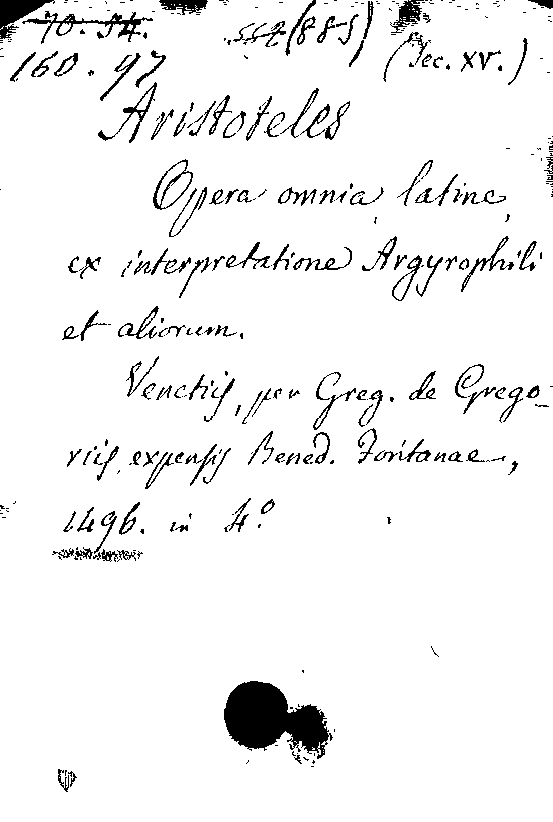 70. 54.
552 (885)
160. 97
(Sec. XV.)
Aristoteles
Opera omnia, latine,
ex interpretatione Argyrophili
et aliorum.
Venetiis, per Greg. de Grego-
riis, expensis Bened. Fontanae,
1496. in 4.º